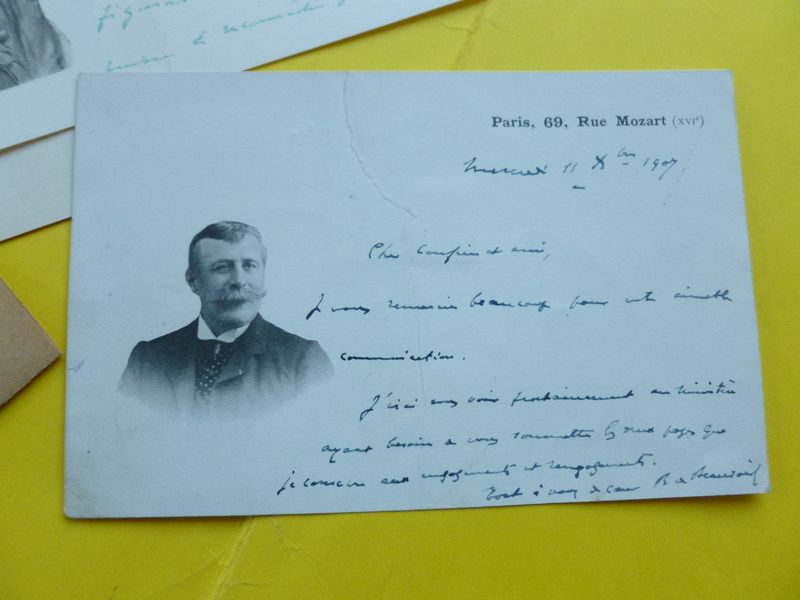 figuras
Paris, 69, Rue Mozart (XVIe)
Mercredi 11 Xbre 1907
Cher Confrère et ami,
Je vous remercie beaucoup pour votre aimable
communication.
J'irai vous voir prochainement au Ministère
ayant besoin de vous soumettre les deux pages que
je consacre aux engagements et rengagements.
Tout à vous de cœur R de Beauvoir